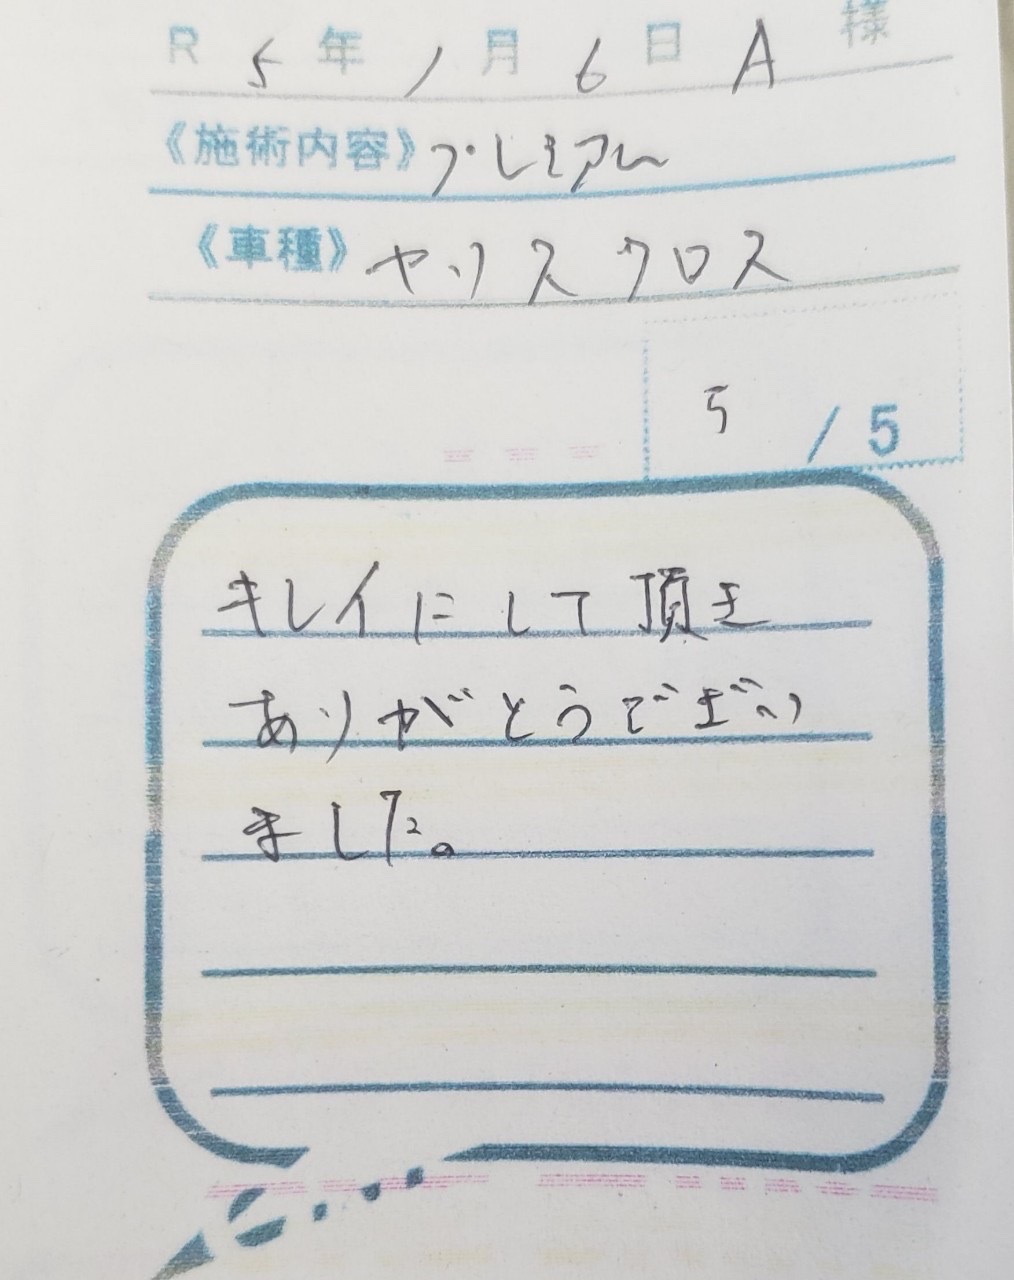 R 5年 1月 6日 A 様
《施術内容》プレミアム
《車種》ヤリスクロス
5 / 5
キレイにして頂き
ありがとうでざい
ました。